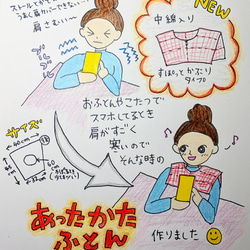 ストールとかだと
うまく肩カバーできない…
肩さむい〜
ブルブル
NEW
中綿入り
すぽっとかぶり
タイプ
おふとんやこたつで
スマホしてるとき
肩がすごく
寒いので
そんな時の
サイズ
60cm
40cm
あったかた
ふとん
作りました